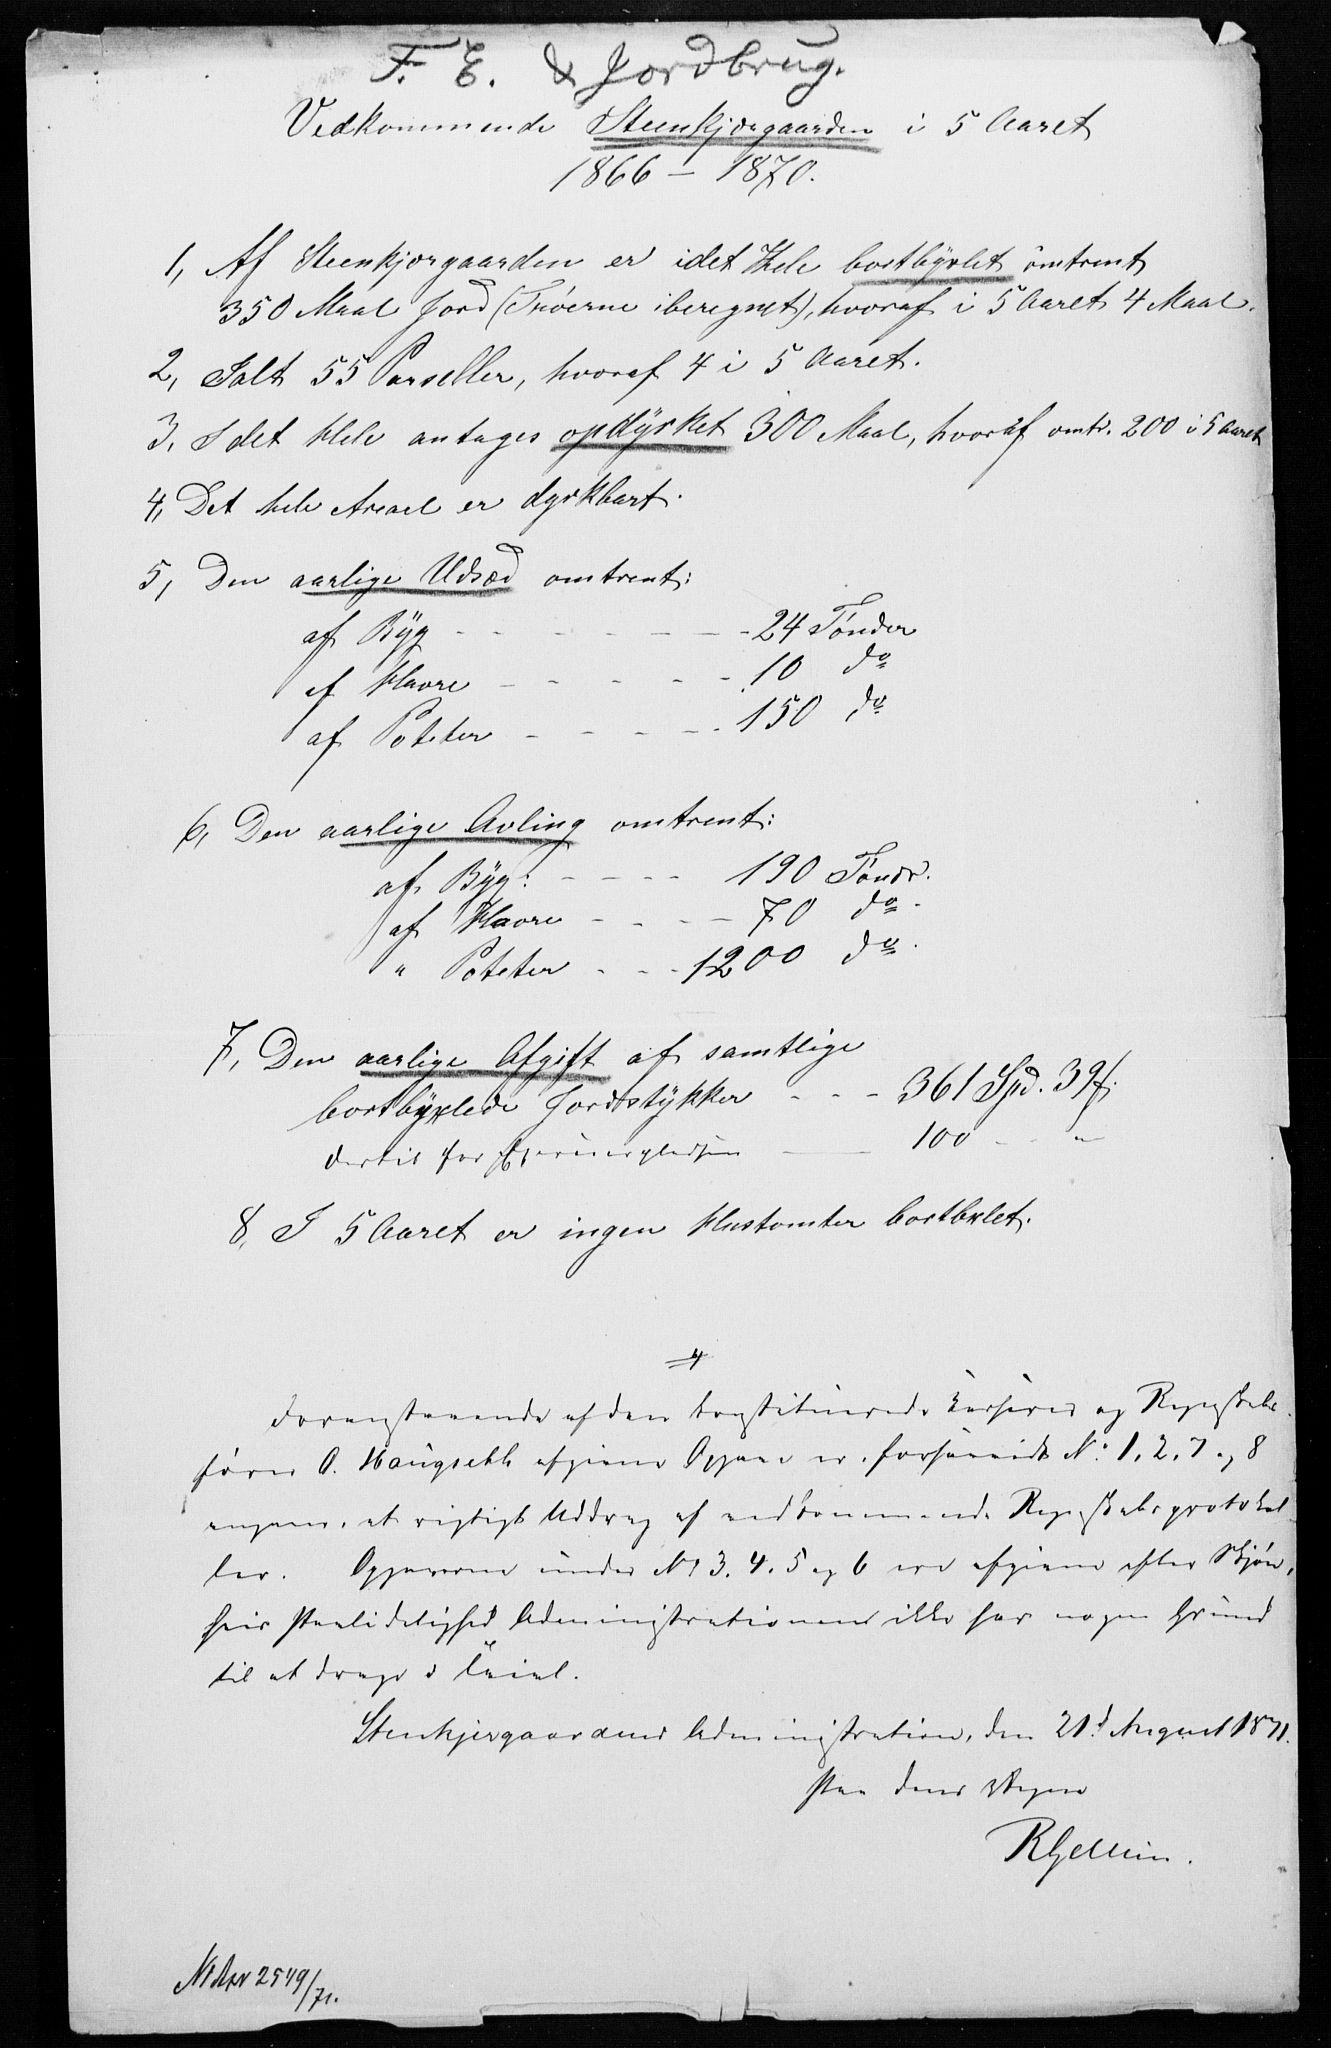 F. E. & Jordbrug.
Vedkommende Steenkjærgaarden i 5 Aaret
1866 – 1870.
1, Af Steenkjærgaarden er idet Hele bortbÿxlet omtrent
350 Maal Jord (Tröerne iberegnet), hvoraf i 5 Aaret 4 Maal.
2, Ialt 55 Parseller, hvoraf 4 i 5 Aaret.
3, I det Hele antages opdÿrket 300 Maal, hvoraf omtr. 200 i 5 Aaret
4, Det hele Areal er dyrkbart.
5, Den aarlige Udsæd omtrent:
af Bÿg - - - - - - - 24 Tønder
af Havre - - - - - - 10 do
af Poteter - - - - - 150 do
6, Den aarlige Avling omtrent:
af Bÿg: - - - - 190 Töndr.
af Havre - - - - 70 do.
" Poteter - - - 1200 do.
7, Den aarlige Afgift af samtlige
bortbÿxlede Jordstÿkker - - - 361 Spd. 39 ſ.
dertil for 100 - - "
8, I 5 Aaret er ingen Hustomter bortbxlet.
Foranstaaende af den konstituerede Kasserer og Regnskabs-
fører O. Haugsebt afgivne Opgave er, forsaavidt No 1, 2, 7 og 8
angaar, et rigtigt Uddrag af vedkommende Regnskabsprotokol-
ler. Opgaverne under No 3. 4. 5 og 6 ere afgivne efter Skjøn,
hvis Paalidelighed Administrationen ikke har nogen Grund
til at drage i Tvivl.
Stenkjergaardens Administration, den 21d August 1871.
Paa dens Vegne
2549/71.